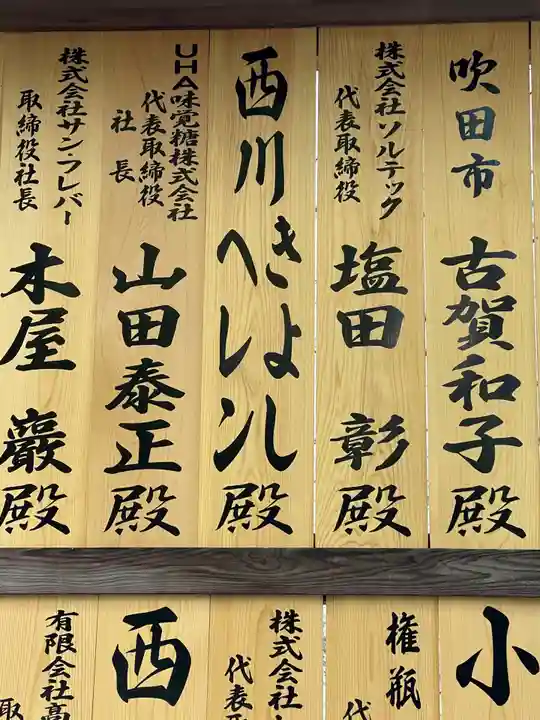 吹田市 古賀和子殿
株式会社ソルテック
代表取締役
塩田 彰殿
西川きよし
ヘレン殿
UHA味覚糖株式会社
代表取締役
社長
山田泰正殿
株式会社サン・フレバー
取締役社長
木屋 巖殿
小
権瓶
代
株式会社
代表取
西
有限会社高
取